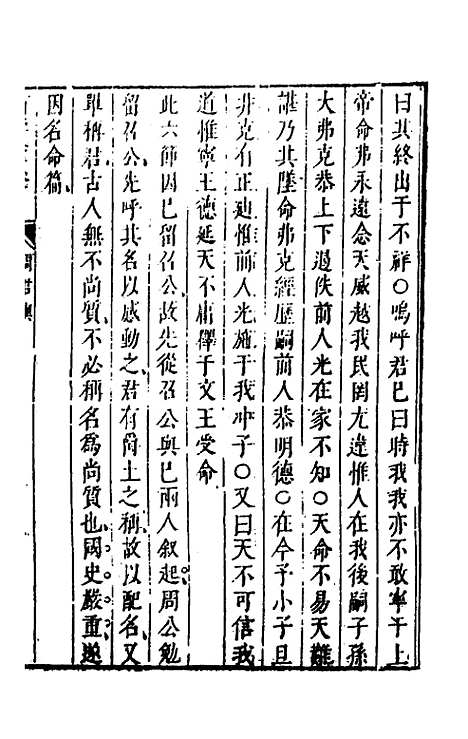 曰其終出于不祥○嗚呼君巳曰時我我亦不敢寧于上
帝命弗永遠念天威越我民罔尤違惟人在我後嗣子孫
大弗克恭上下遏佚前人光在家不知○天命不易天難
諶乃其墜命弗克經歷嗣前人恭明德○在今予小子旦
非克有正迪惟前人光施于我冲子○又曰天不可信我
道惟寧王德延天不庸釋于文王受命
此六節因巳留召公故先從召公與巳兩人叙起周公勉
留召公先呼其名以感動之君有爵土之稱故以配名又
單稱君古人無不尚質不必稱名爲尚質也國史嚴重遂
因名命篇
君奭